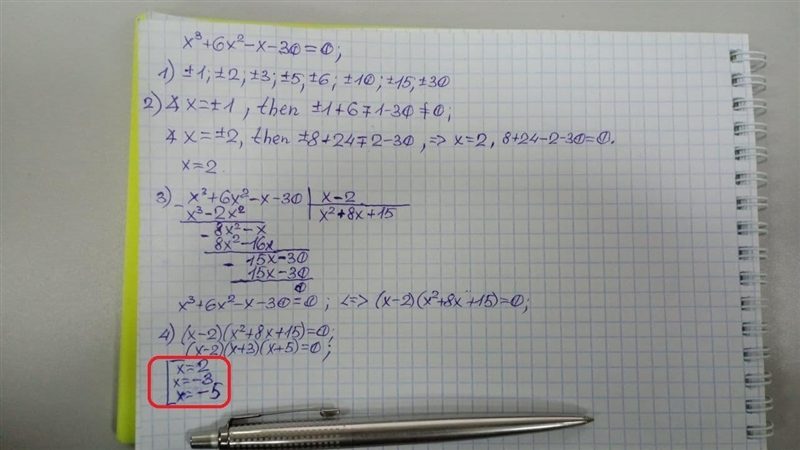 x³+6x²-x-30=0;
1) ±1; ±2; ±3; ±5; ±6; ±10; ±15, ±30
2) ∢ x=±1, then ±1+6∓1-30≠0;
∢ x=±2, then ±8+24∓2-30, => x=2, 8+24-2-30=0.
x=2.
3) - x³+6x²-x-30 | x-2
x³-2x² | x²+8x+15
- 8x²-x
8x²-16x
- 15x-30
15x-30
0
x³+6x²-x-30=0; <=> (x-2)(x²+8x+15)=0;
4) (x-2)(x²+8x+15)=0;
(x-2)(x+3)(x+5)=0;
[x=2
x=-3
x=-5